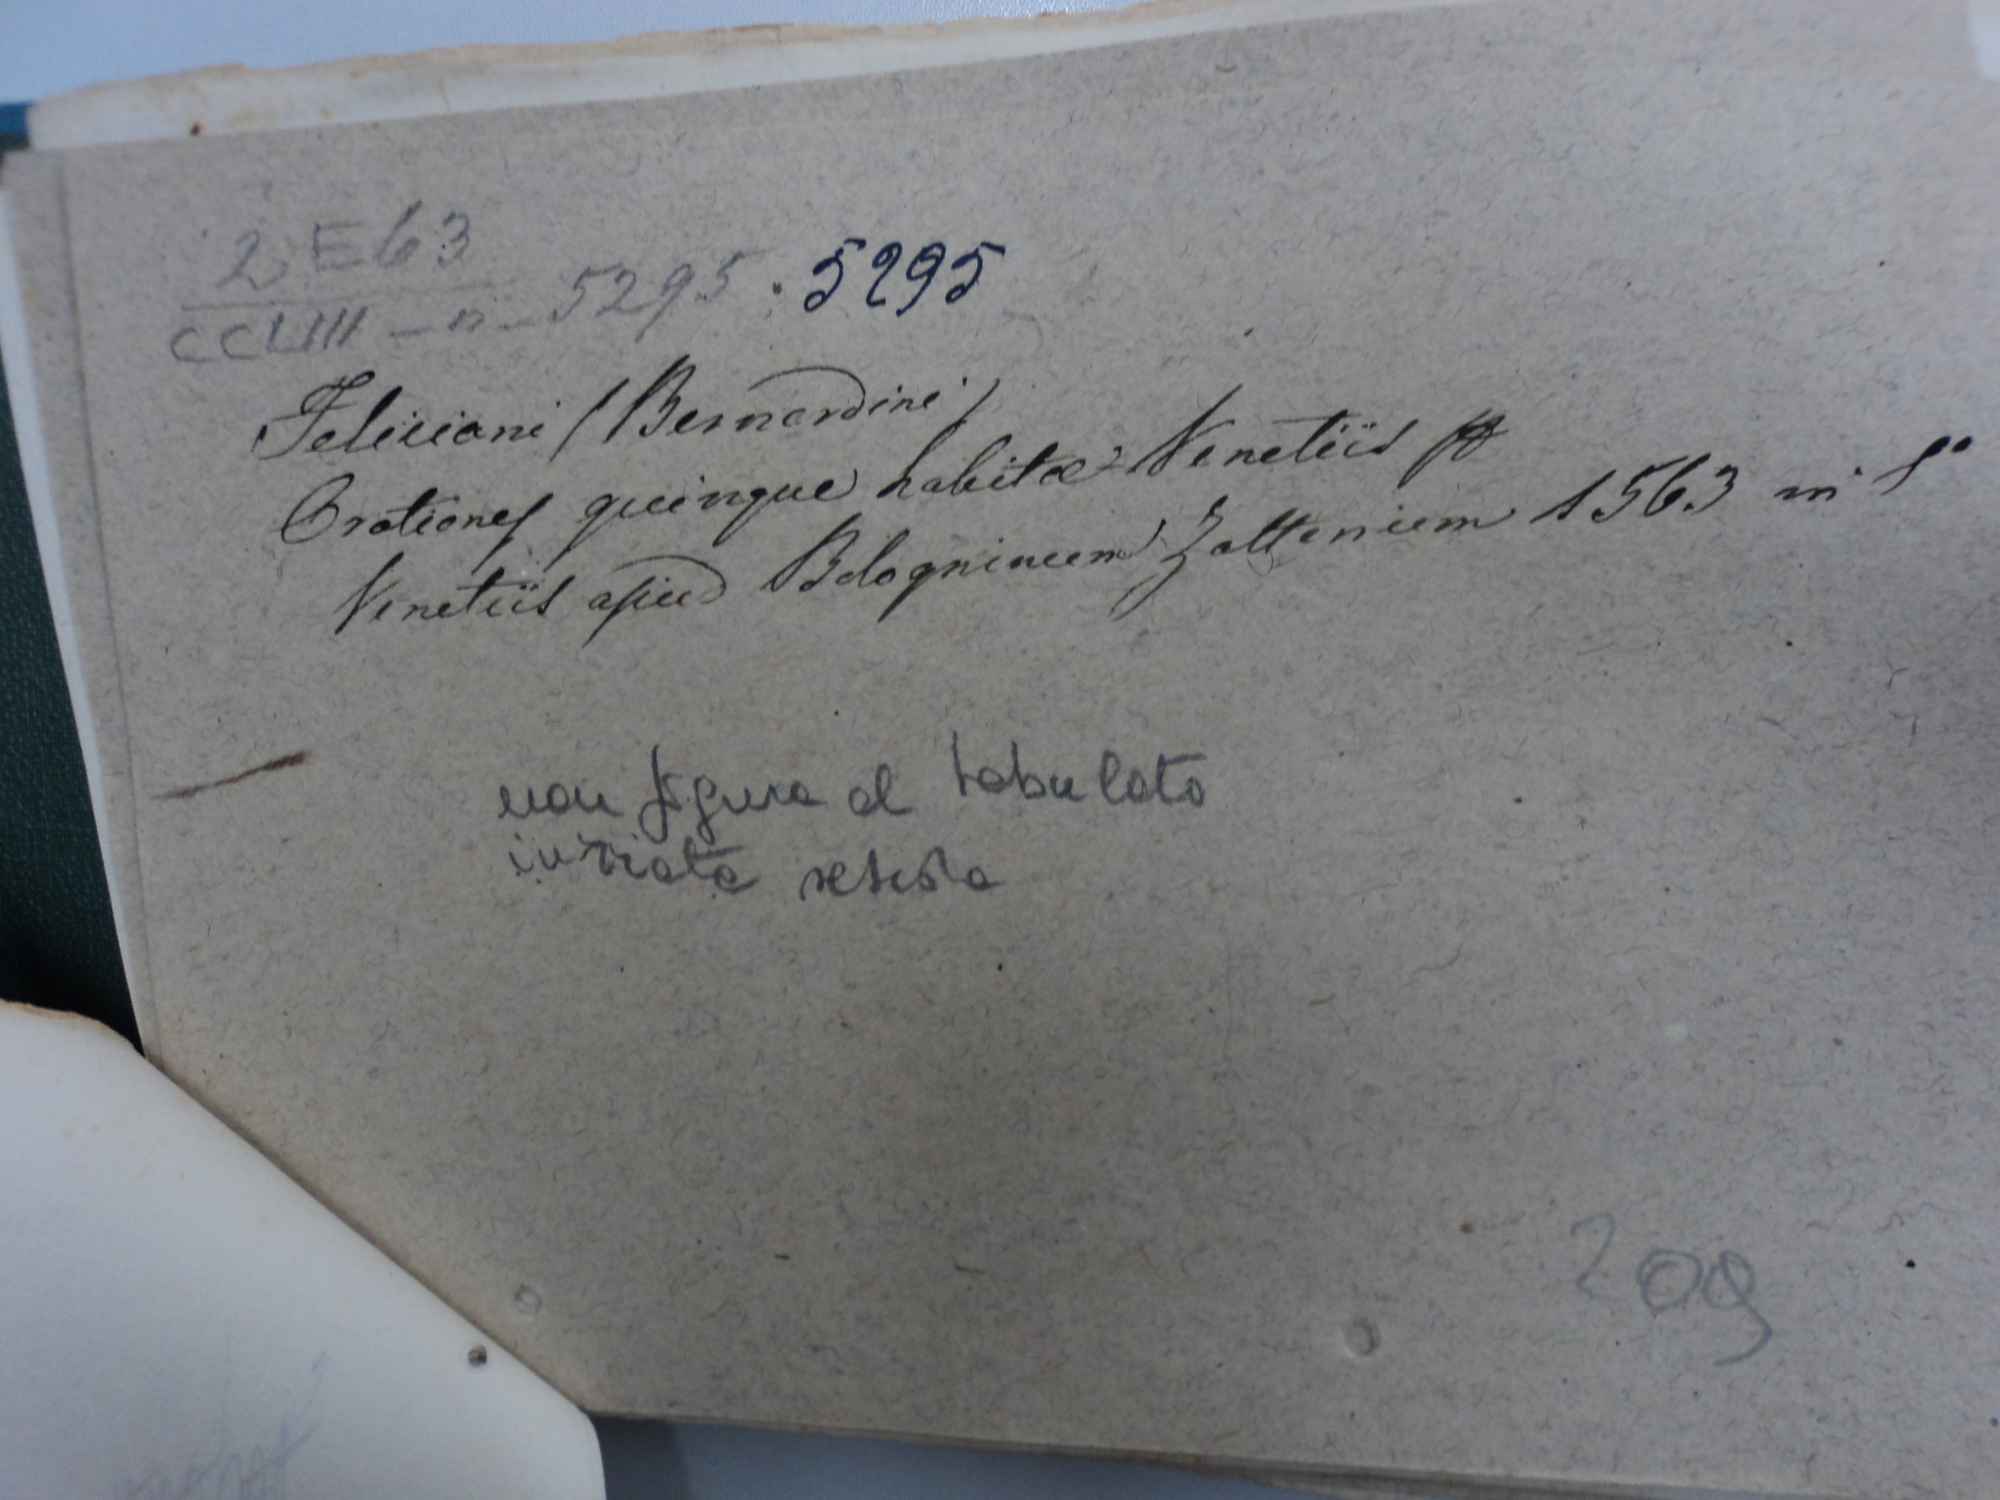 2 E 63
CCLIII - n - 5295 . 5295
Feliciani (Bernardini)
Orationes quinque habitæ Venetiis
Venetiis apud Bologninum Zaltenium 1563 in 8°
non figura al tabulato
inviata scheda
209